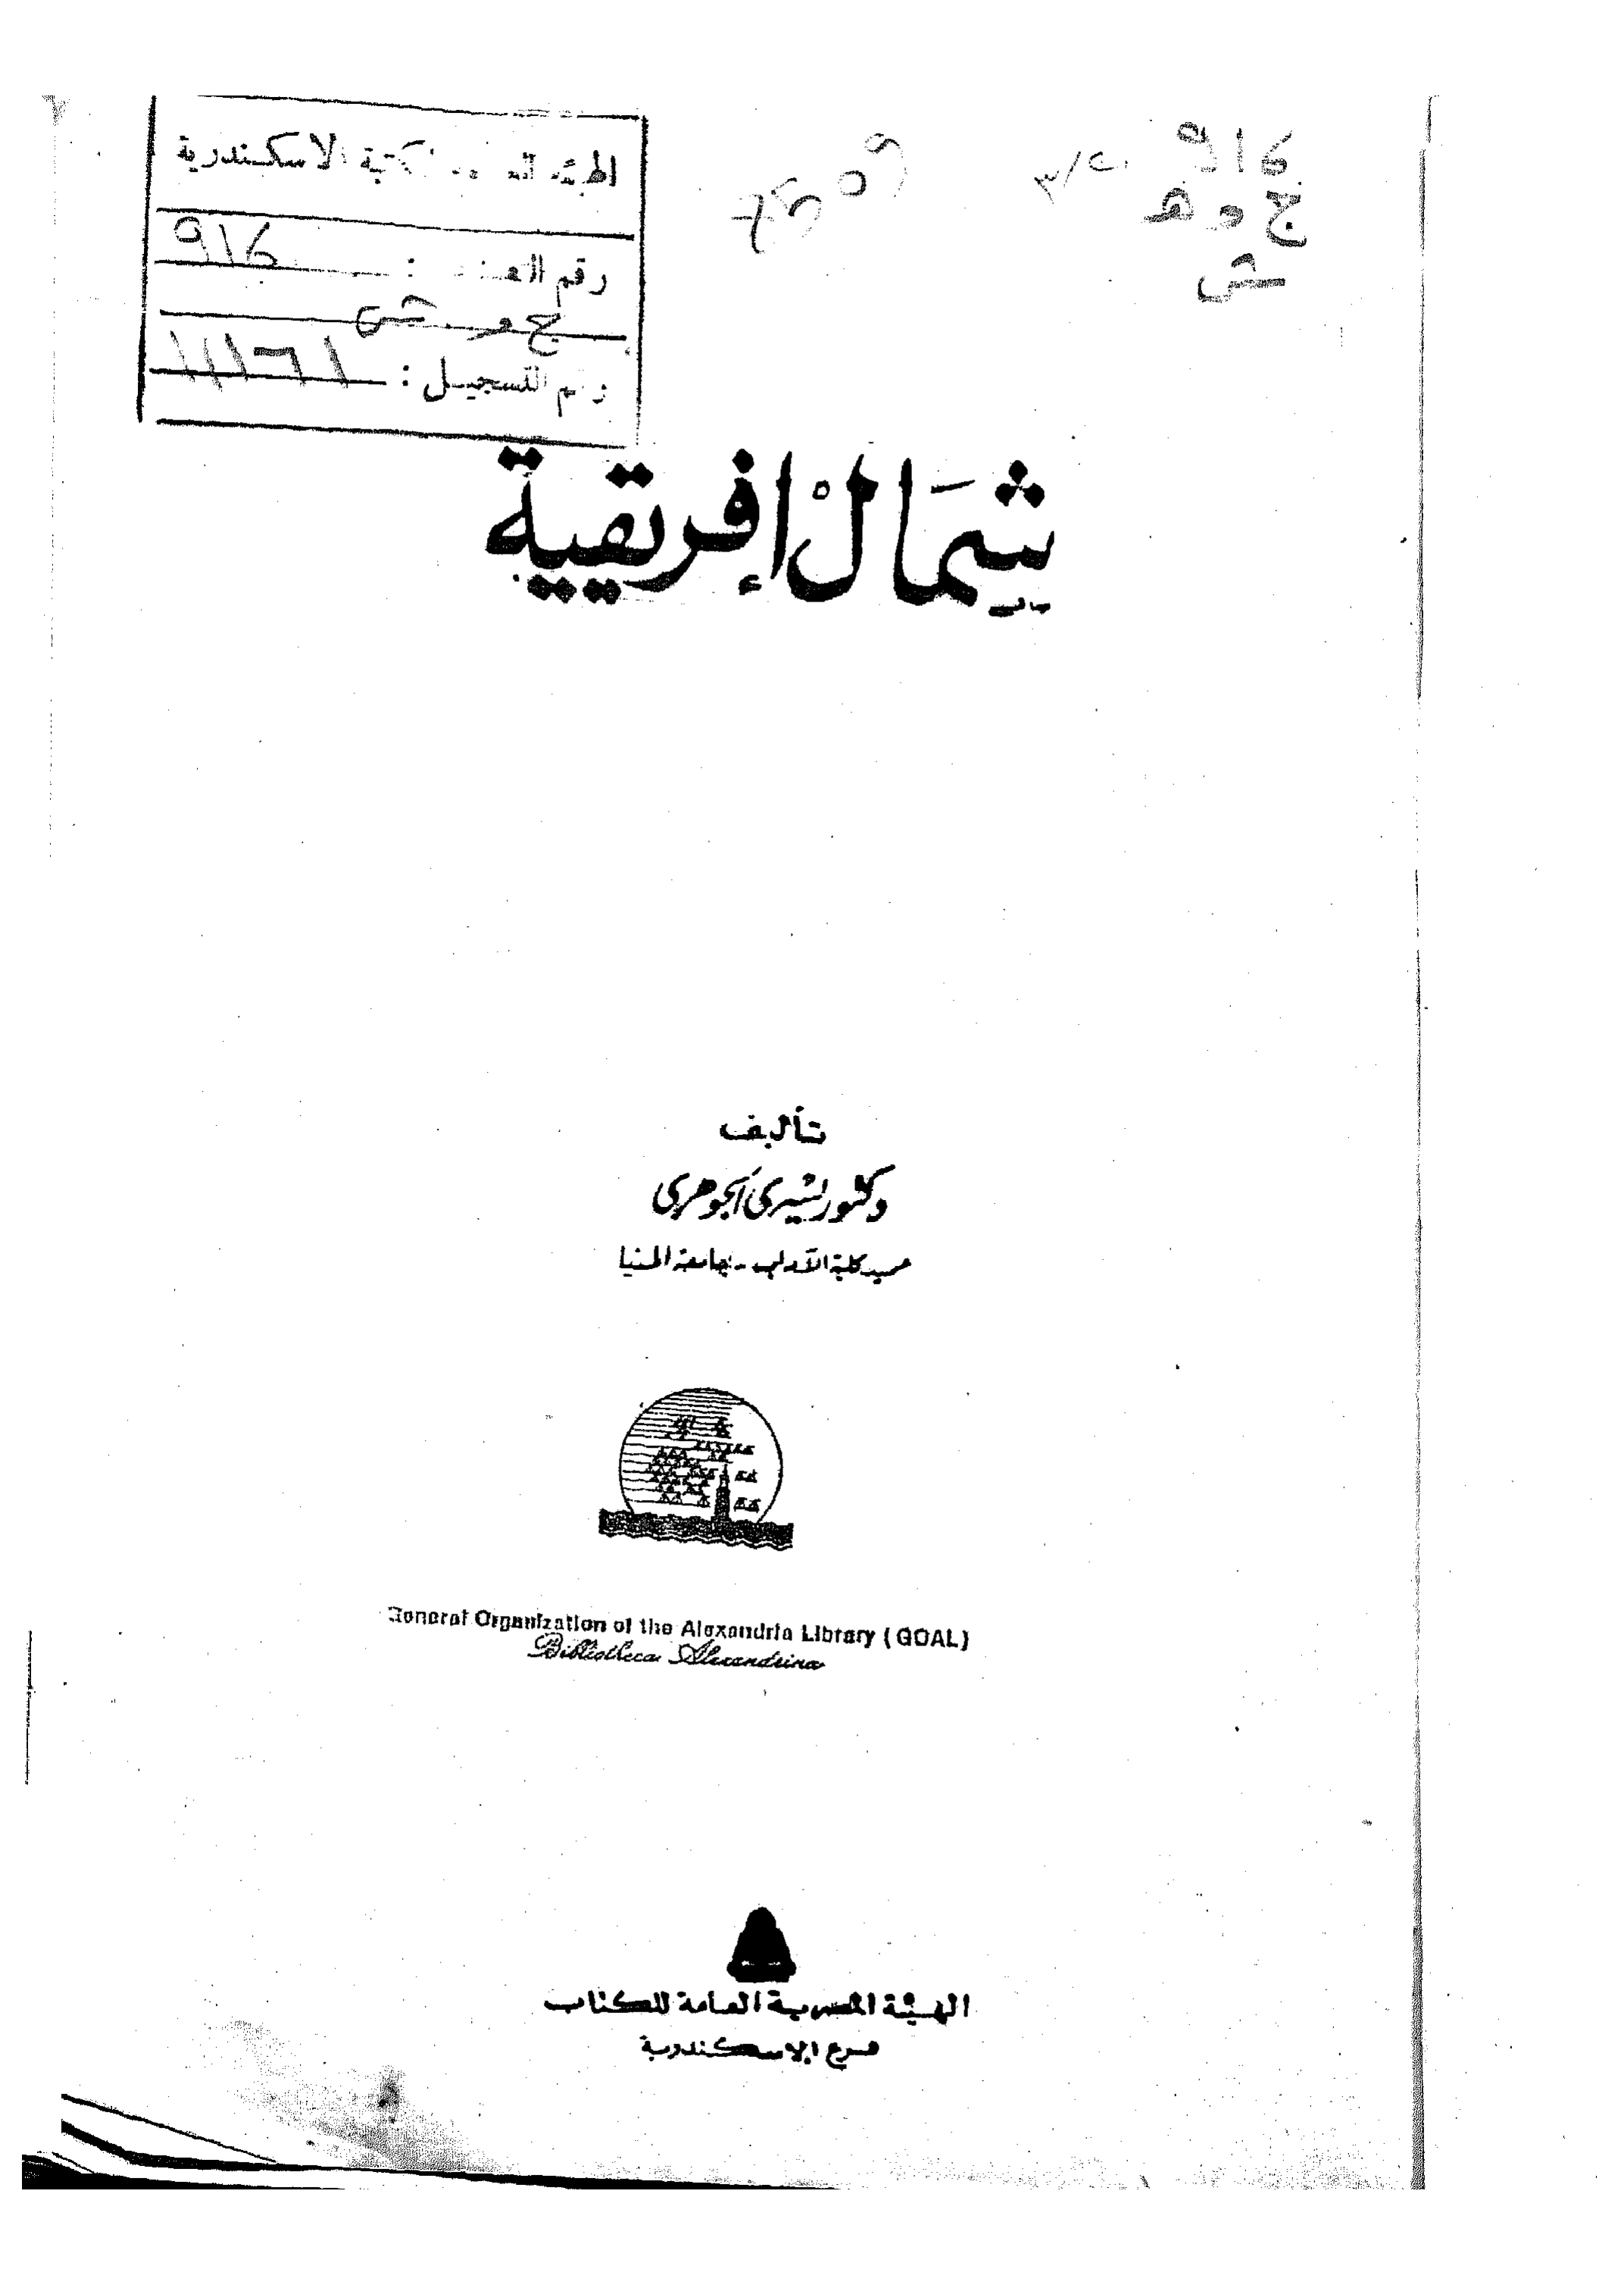 916
ج و هـ
ش
الهيئة العامة لمكتبة الاسكندرية
رقم : 916
ج و ش
رقم التسجيل :
شمال إفريقية
تأليف
دكتور يسرى الجوهرى
عميد كلية الآداب - جامعة المنيا
General Organization of the Alexandria Library (GOAL)
Bibliotheca Alexandrina
الهيئة المصرية العامة للكتاب
فرع الاسكندرية